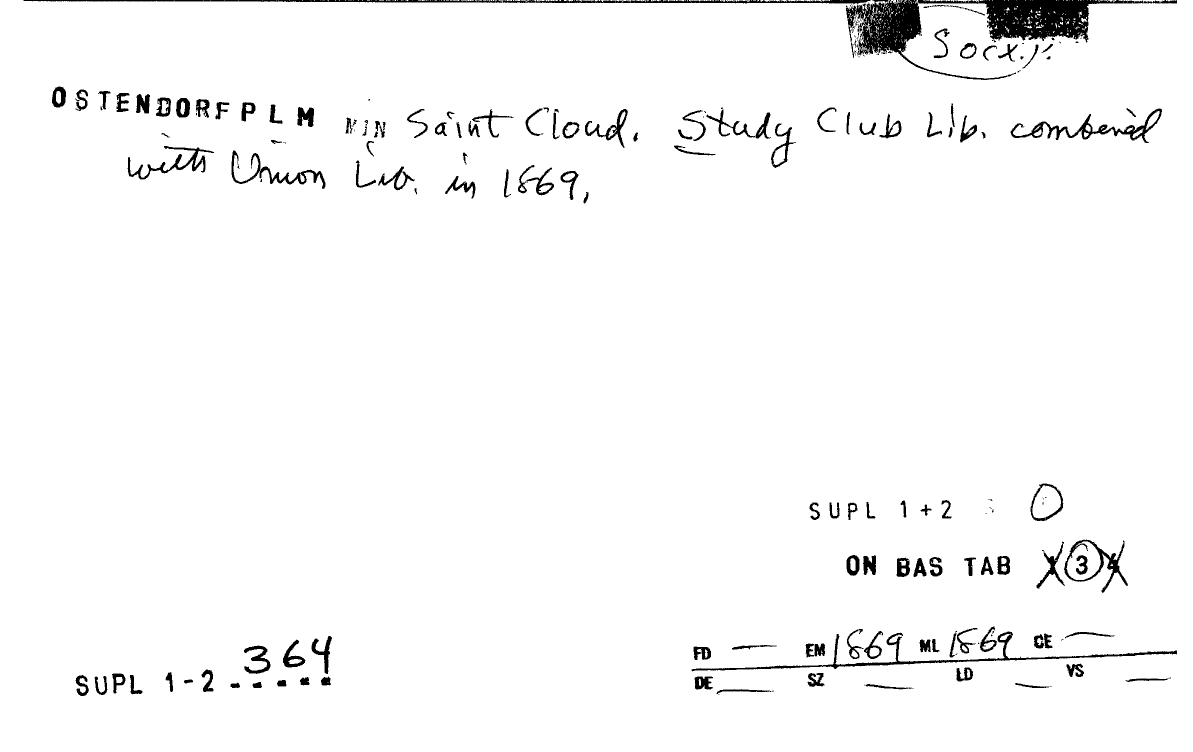 Socx.
OSTENDORF P L M MIN Saint Cloud. Study Club Lib. combined
with Union Lib. in 1869,
SUPL 1+2 : 0
ON BAS TAB 3 4
FD — EM 1869 ML 1869 CE —
SUPL 1-2 364
DE — SZ — LD — VS —